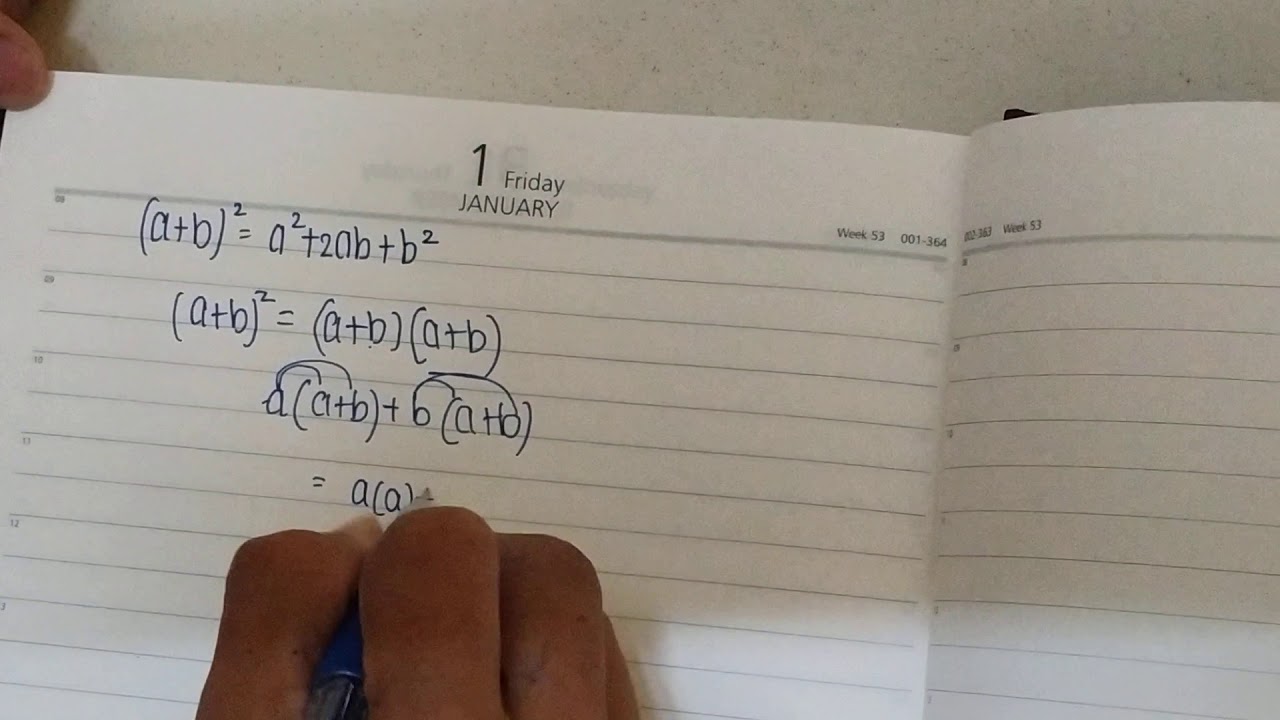 1 Friday
JANUARY
Week 53 001-364
002-363 Week 53
(a+b)² = a²+2ab+b²
(a+b)² = (a+b)(a+b)
a(a+b)+ b(a+b)
= a(a)+
09
09
10
11
12